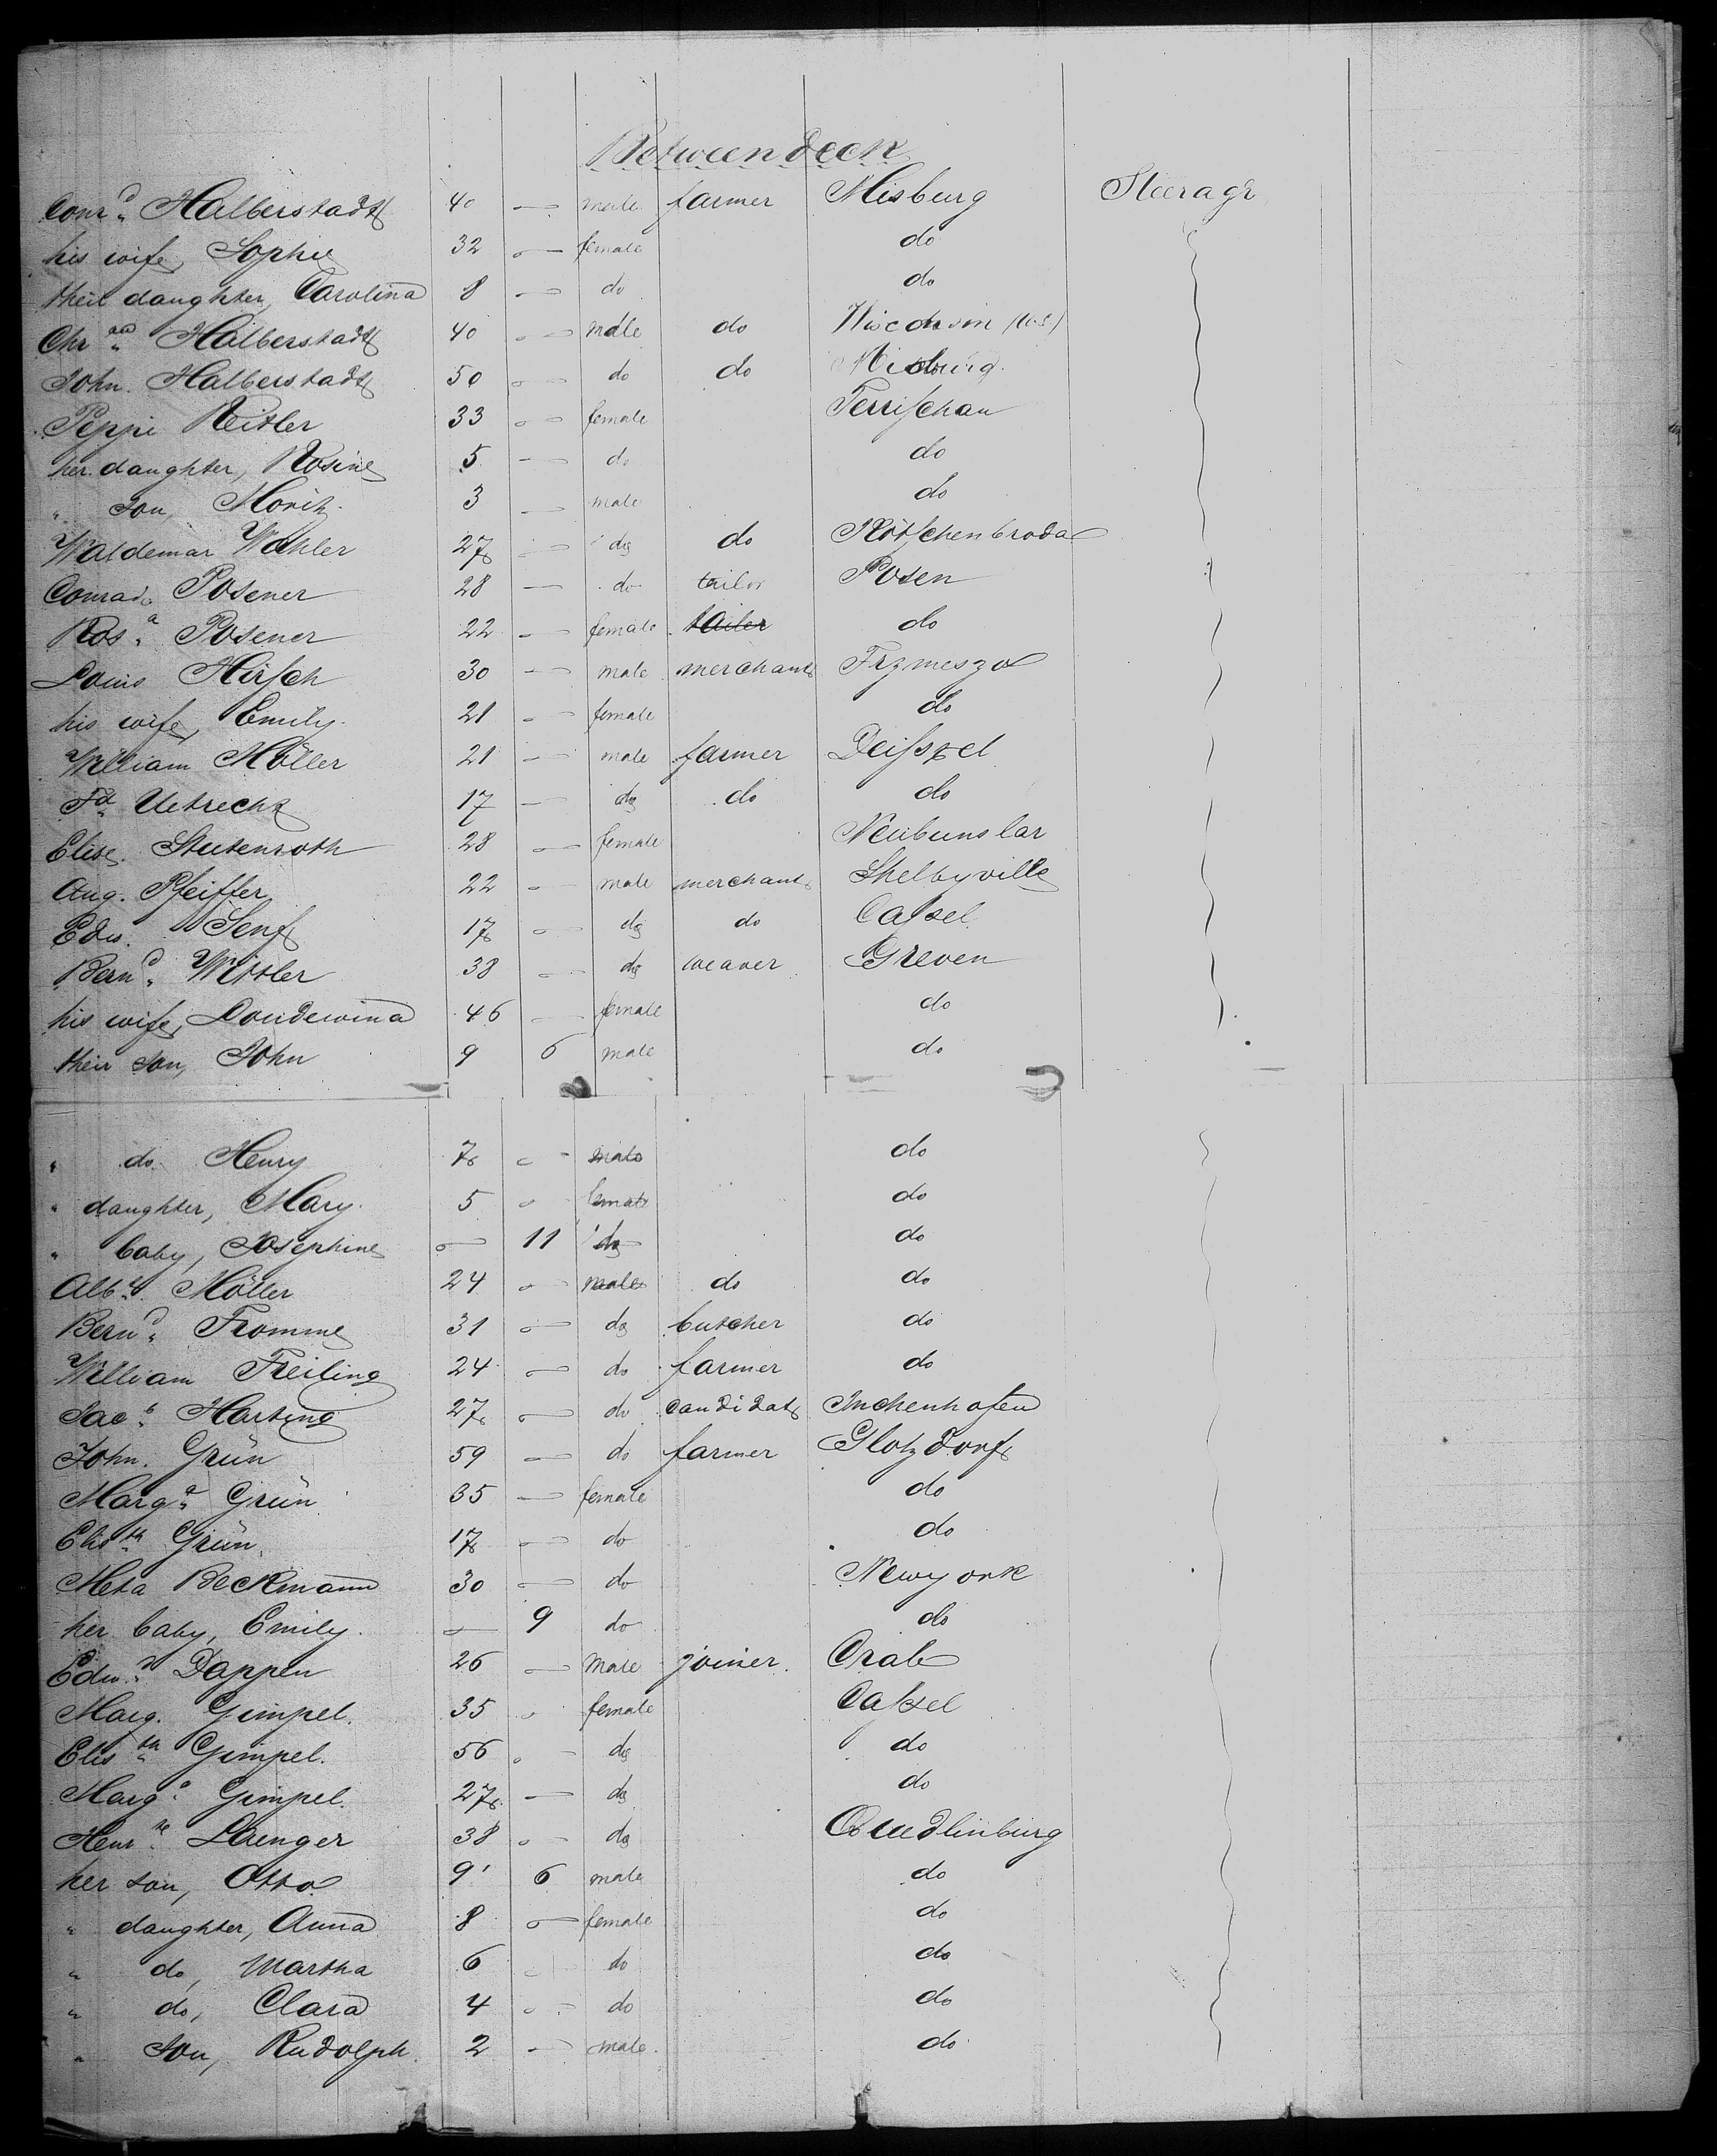 Between deck
Conrd. Halberstadt 40 — male farmer Misburg Steerage
his wife, Sophie 32 — female do
their daughter, Carolina 8 — do do
Chr. Halberstadt 40 — male do Wisconsin (U.S.)
John. Halberstadt 50 — do do Misburg
Peppi Reitler 33 — female Terrischau
her daughter, Rosine 5 — do do
" son, Moritz 3 — male do
Waldemar Wahler 27 — do do Kötschenbroda
Conrad. Posener 28 — do tailor Posen
Rosa. Posener 22 — female tailor do
Louis Hirsch 30 — male merchant Trzmeszo
his wife, Emily 21 — female do
William Möller 21 — male farmer Deissel
Fd. Uetrecht 17 — do do do
Elise Stutenroth 28 — female Neubunslar
Aug. Pfeiffer 22 — male merchant Shelbyville
Edw. Senf 17 — do do Cassel
Bernd. Wittler 38 — do weaver Greven
his wife, Loudewina 46 — female do
their son, John 9 6 male do
" do Henry 7 — male do
" daughter, Mary 5 — female do
" baby, Josephine — 11 do do
Albt. Möller 24 — male do do
Bernd. Fromme 31 — do butcher do
William Freiling 24 — do farmer do
Jacb. Harting 27 — do candidat Inchenhofen
John. Grün 59 — do farmer Glotzdorf
Marga. Grün 35 — female do
Elisth. Grün 17 — do do
Meta Beckmann 30 — do Newyork
her baby, Emily — 9 do do
Edwd. Dappen 26 — male joiner Crab
Marg. Gimpel 35 — female Cassel
Elisth. Gimpel 56 — do do
Marga. Gimpel 27 — do do
Henrte. Laenger 38 — do Quedlinburg
her son, Otto 9 6 male do
" daughter, Anna 8 — female do
" do, Martha 6 — do do
" do, Clara 4 — do do
" son, Rudolph 2 — male do